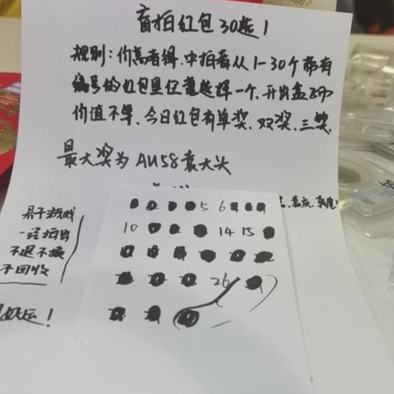 盲拍红包30起!
规则:价高者得.中拍者从1-30个带有
编号的红包里任意选择一个,开出盒子
价值不等,今日红包有单奖,双奖,三奖
最大奖为AU58袁大头
5 6
属于游戏
10 14 15
一经拍出
不退不换
不回收
26
好运!